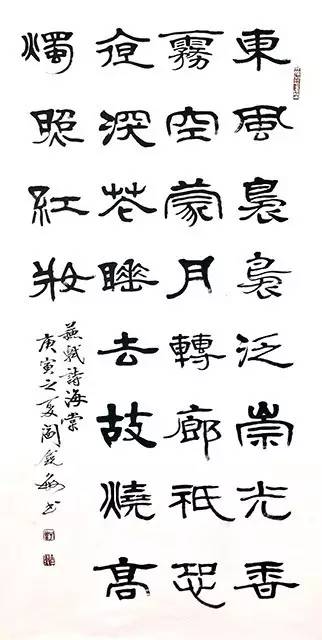 東風裊裊泛崇光香
霧空蒙月轉廊祇恐
夜深花睡去故燒高
燭照紅妝
蘇軾詩海棠
庚寅之夏閻敏书